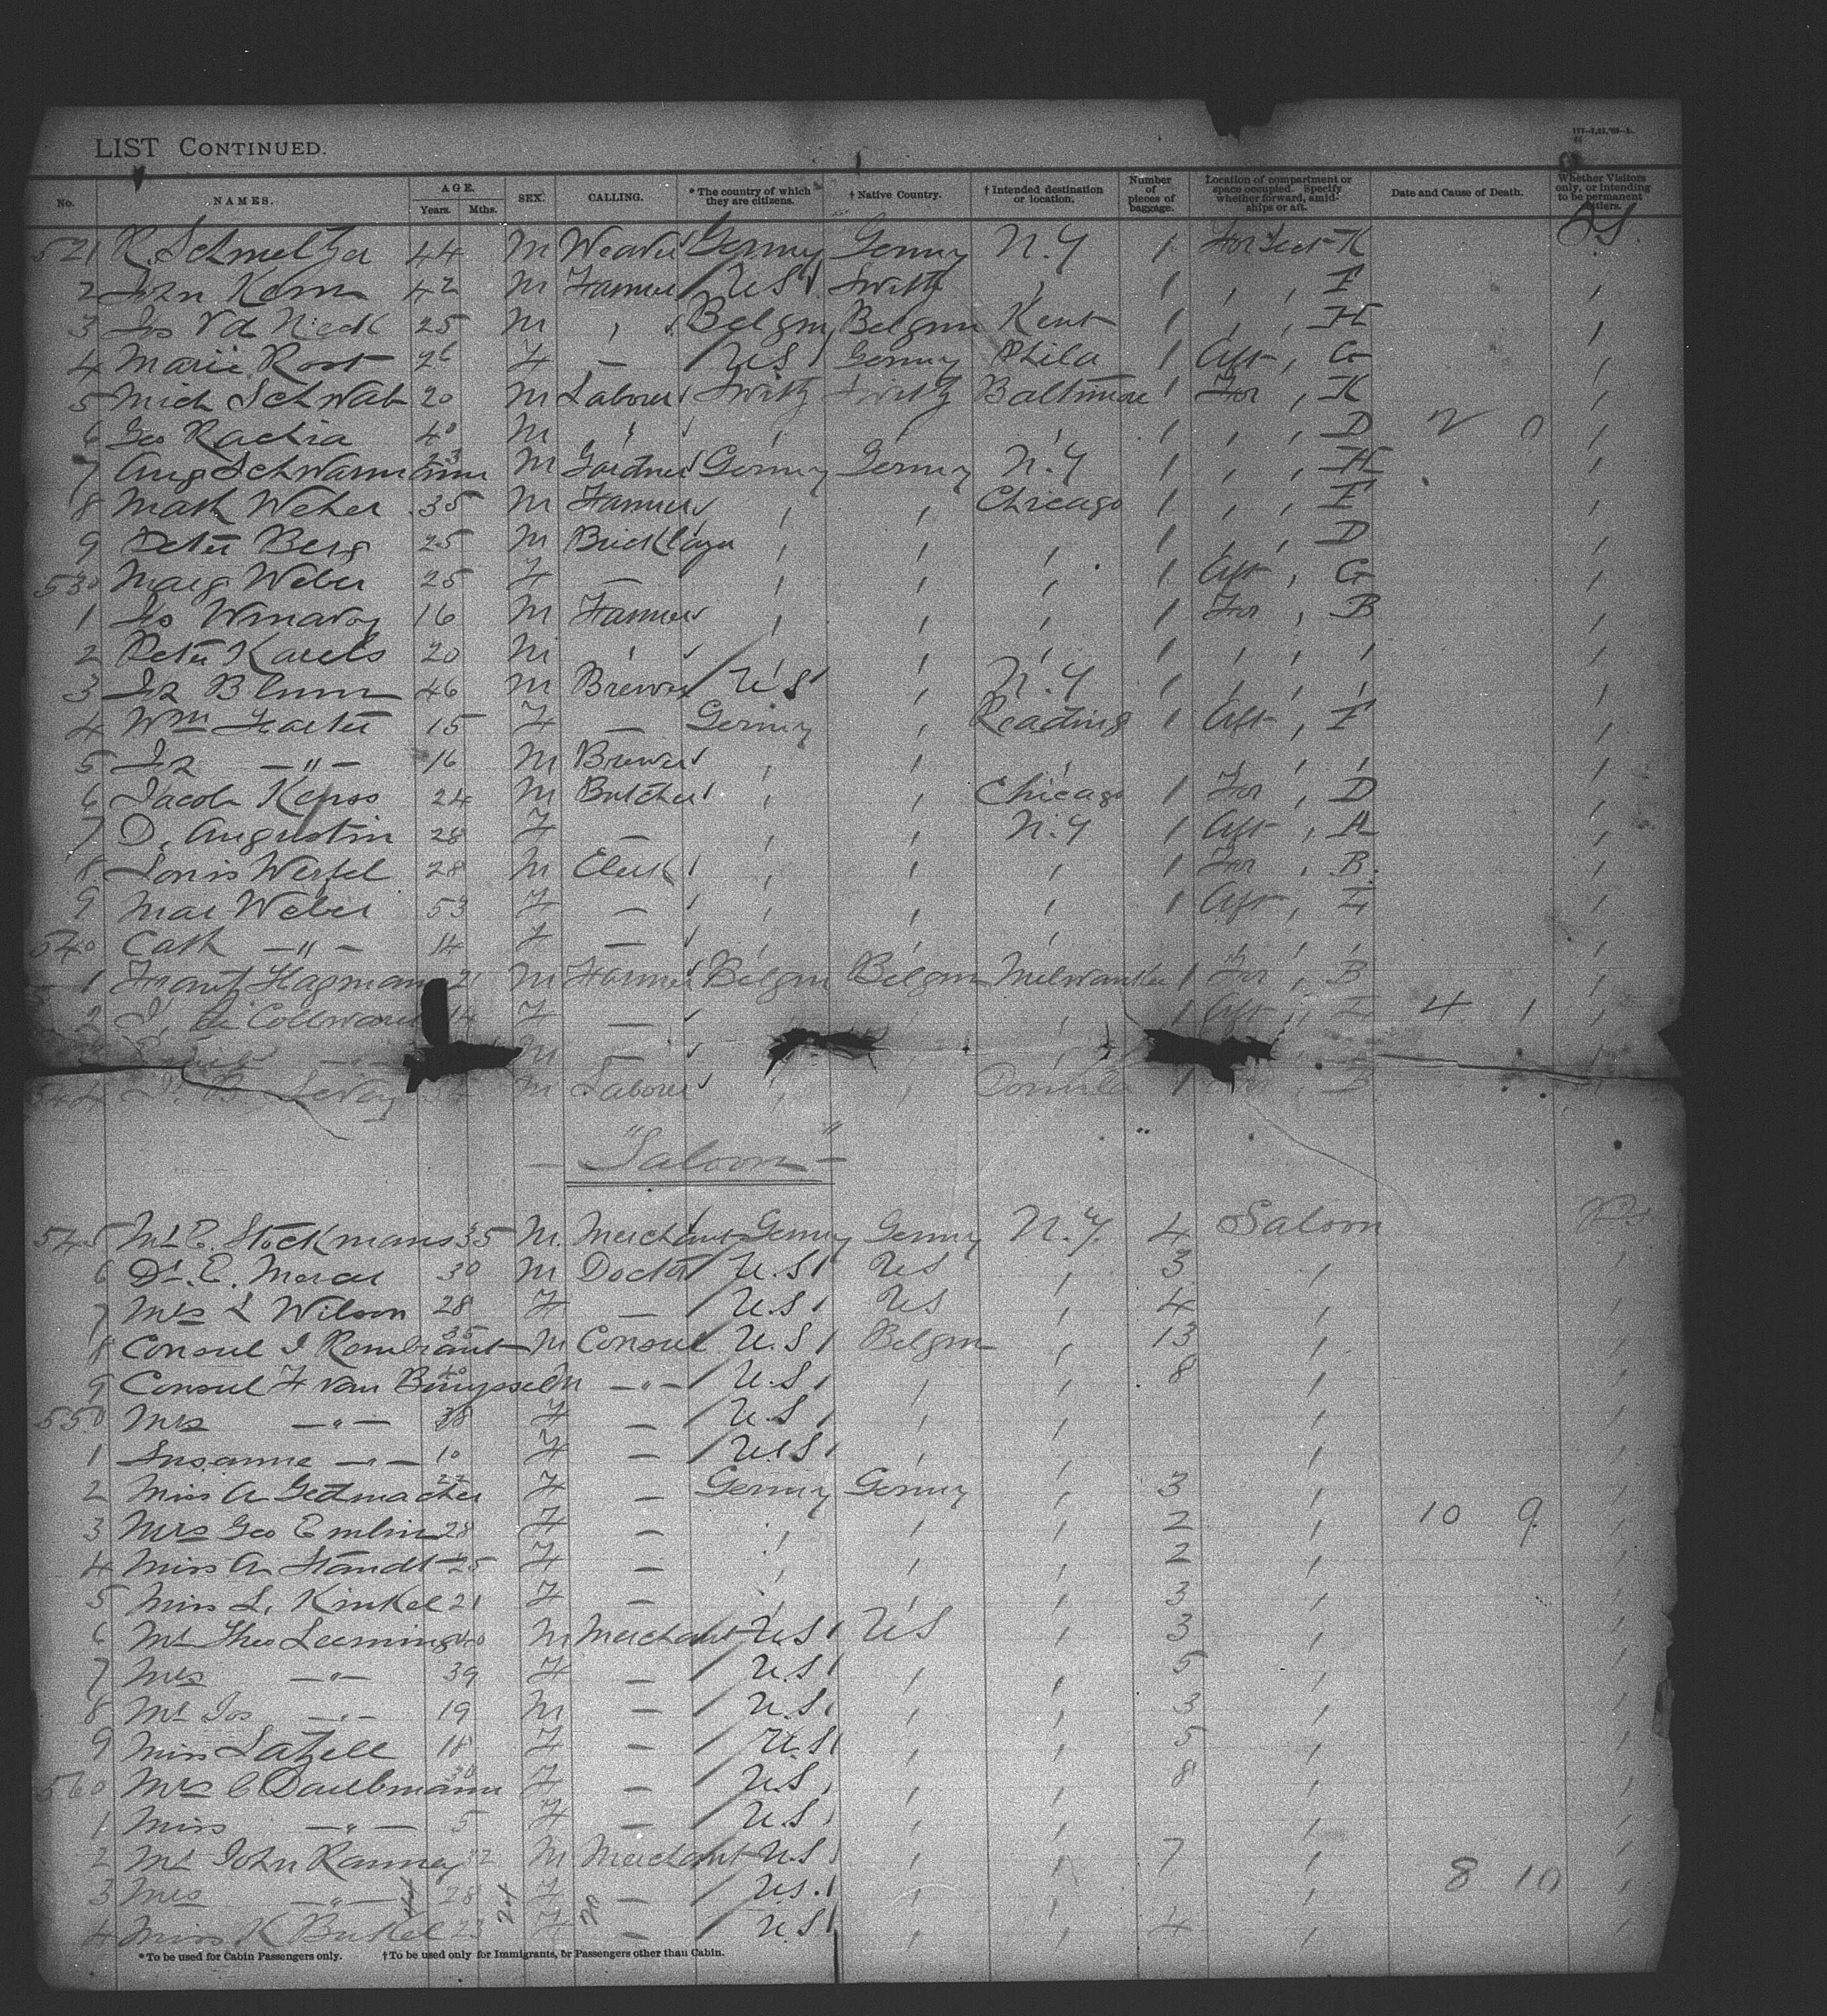 LIST CONTINUED.
No. NAMES. AGE. Years. Mths. SEX. CALLING. * The country of which they are citizens. † Native Country. † Intended destination or location. Number of pieces of baggage. Location of compartment or space occupied. Specify whether forward, amidships or aft. Date and Cause of Death. Whether Visitors only, or intending to be permanent settlers.
521 R. Schmeltzer 44 M Weaver Germy Germy N.Y 1 For Sect K
2 Kern 42 M Farmer US Switz , 1 , , I
3 Jos Vd Neck 25 M , Belgm Belgm Kent 1 , , H
4 Marie Rost 26 F — US Germy Phila 1 Aft , G
5 Mich Schwab 20 M Laborer Switz Switz Baltimore 1 For , K
6 Geo Rachia 40 M , , , , 1 , , D 2 0 ,
7 Aug Schwarmann 23 M Gardner Germy Germy N.Y 1 , , H
8 Math Weber 35 M Farmer , , Chicago 1 , , I
9 Peter Berg 25 M Bricklayer , , , 1 , , D
530 Marg Weber 25 F — , , , 1 Aft , G
1 16 M Farmer , , , 1 For , B
2 Peter Karels 20 M , , , , 1 , , ,
3 Blum 46 M Brewer US , N.Y 1 , , ,
4 Wm 15 F — Germy , Reading 1 Aft , I
5 —"— 16 M Brewer , , , , , ,
6 Jacob 24 M Butcher , , Chicago 1 For , D
7 D. Augustin 28 F — , , N.Y 1 Aft , H
8 Louis Wertel 28 M Clerk , , , 1 For , B
9 Mar Weber 53 F — , , , 1 Aft , I
540 Cath —"— 14 F — , , , , , ,
1 Frantz Hagmann 21 M Farmer Belgm Belgm Milwaukee 1 For , B
2 14 F — , , , 1 Aft , I 4 1 ,
M — , , ,
544 M Laborer , , 1
— "Saloon" —
545 Mr E. Stockmans 35 M. Merchant Germy Germy N.Y. 4 Saloon
6 Dr. E. 30 M Doctor U.S US , 3 ,
7 Mrs L Wilson 28 F — U.S US , 4 ,
8 Consul J Rembrant 35 M Consul U.S Belgm , 13 ,
9 Consul F van Bruyssel 40 M —"— U.S , , 8 ,
550 Mrs —"— 38 F — U.S , , ,
1 Susanne —"— 10 F — U.S , , ,
2 Miss A Getmacher 22 F — Germy Germy , 3 ,
3 Mrs Geo Emlin 28 F — , , , 2 , 10 9
4 Miss A Standt 25 F — , , , 2 ,
5 Miss L. Kinkel 21 F — , , , 3 ,
6 Mr Theo Leeming 40 M Merchant U.S US , 3 ,
7 Mrs —"— 39 F — U.S , , 5 ,
8 Mr Jos —"— 19 M — U.S , , 3 ,
9 Miss Latzell 18 F — U.S , , 5 ,
560 Mrs C Daubmann 30 F — U.S , , 8 ,
1 Miss —"— 5 F — U.S , , ,
2 Mr John Ranney M Merchant U.S , , 7 ,
3 Mrs —"— 28 F — U.S. , , , 8 10
4 Miss K 23 F — U.S , , 4 ,
* To be used for Cabin Passengers only. † To be used only for Immigrants, or Passengers other than Cabin.